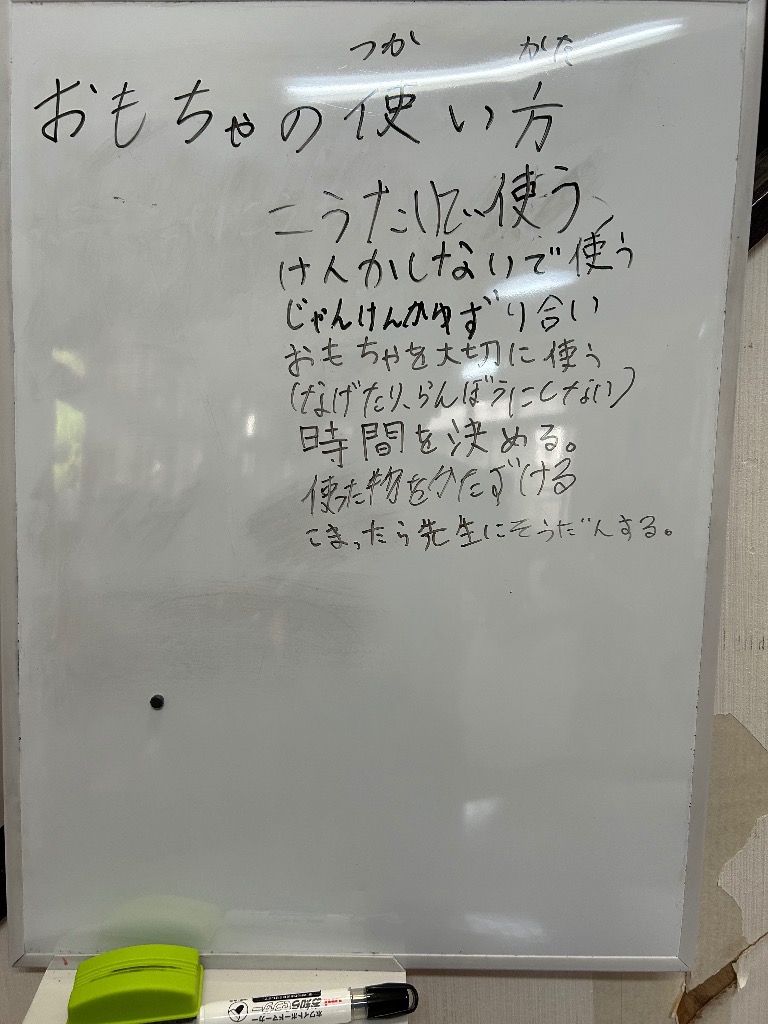 つか かた
おもちゃの使い方
こうたいで使う、
けんかしないで使う
じゃんけんかゆずり合い
おもちゃを大切に使う
(なげたり、らんぼうにしない)
時間を決める。
使った物をかたずける
こまったら先生にそうだんする。
ホワイトボードマーカー